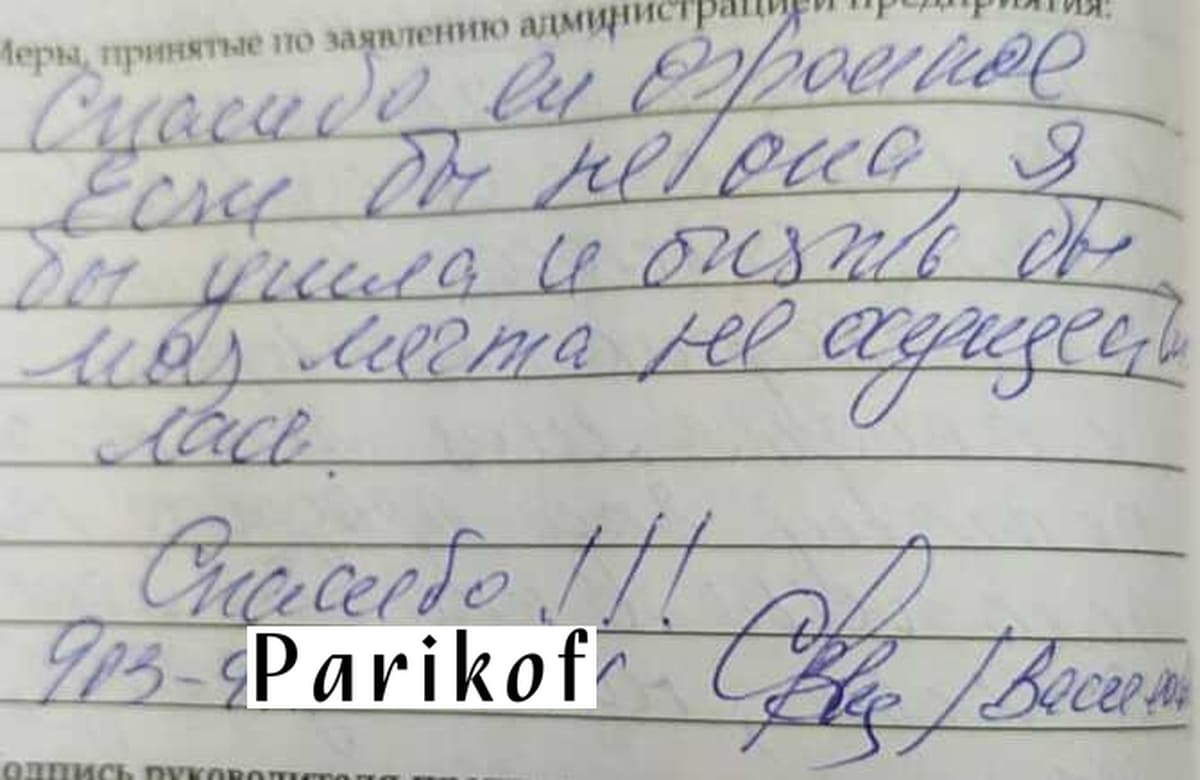 Меры, принятые по заявлению администрацией предприятия:
Спасибо ей огромное
Если бы не она, я
бы ушла и опять бы
моя мечта не осуществи
лась.
Спасибо!!!
913-9 Parikof
одпись руководителя